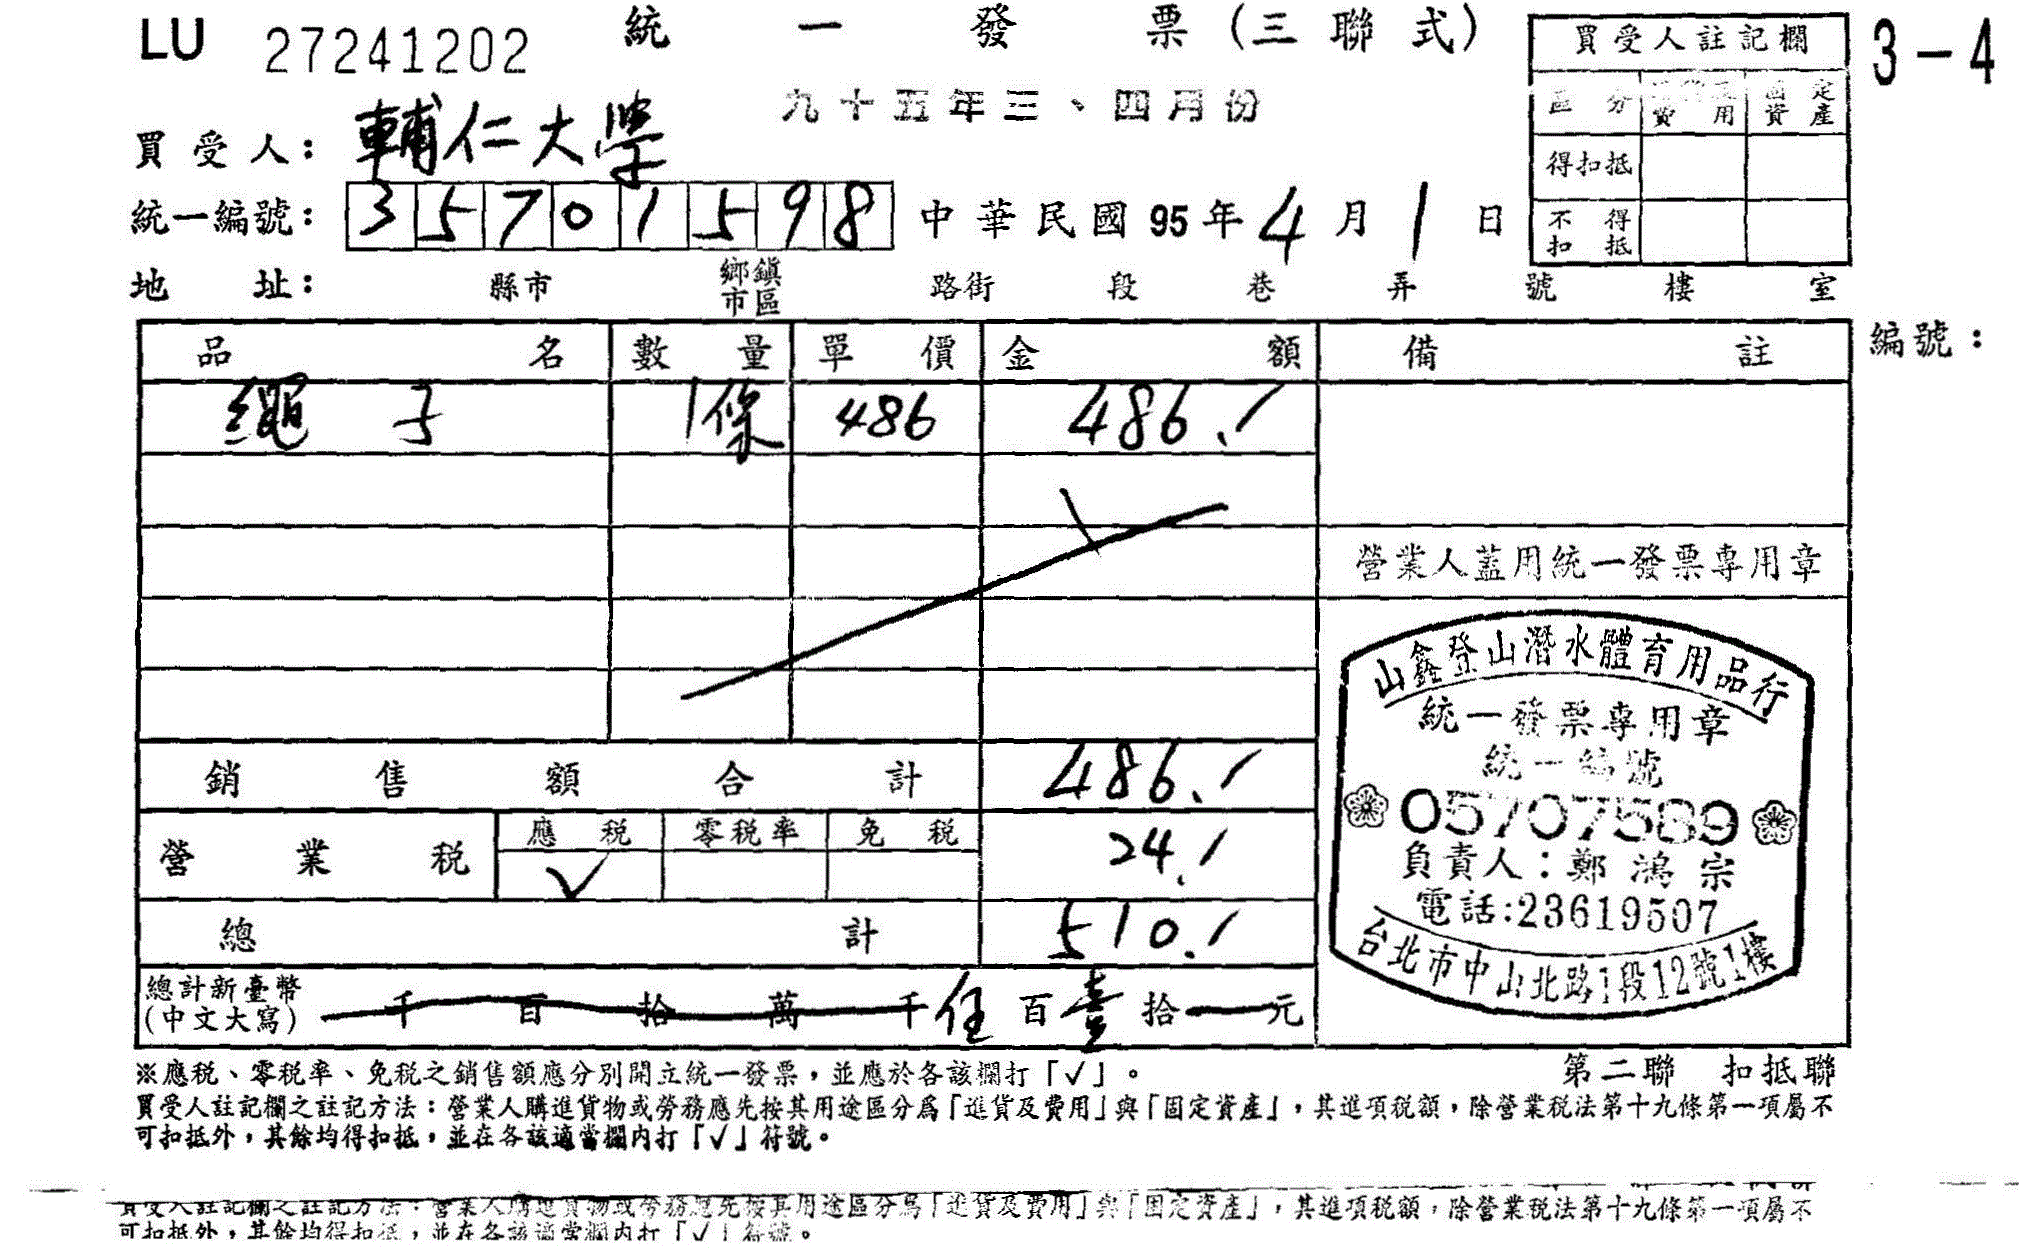 LU 27241202 統一發票(三聯式) 3-4
九十五年三、四月份
買受人註記欄
區分 費用 固定資產
得扣抵
不得扣抵
買受人：輔仁大學
統一編號：35701598 中華民國95年4月1日
地址： 縣市 鄉鎮市區 路街 段 巷 弄 號 樓 室
品名 數量 單價 金額 備註 編號：
繩子 1條 486 486.
營業人蓋用統一發票專用章
銷售額合計 486.
營業稅 應稅 零稅率 免稅 24.
√
總計 510.
總計新臺幣(中文大寫) 千百拾萬千伍百壹拾元
山鑫登山潛水體育用品行
統一發票專用章
統一編號
05707589
負責人：鄭鴻宗
電話:23619507
台北市中山北路1段12號1樓
※應稅、零稅率、免稅之銷售額應分別開立統一發票，並應於各該欄打「√」。
第二聯 扣抵聯
買受人註記欄之註記方法：營業人購進貨物或勞務應先按其用途區分為「進貨及費用」與「固定資產」，其進項稅額，除營業稅法第十九條第一項屬不
可扣抵外，其餘均得扣抵，並在各該適當欄內打「√」符號。
買受人註記欄之註記方法：營業人購進貨物或勞務應先按其用途區分為「進貨及費用」與「固定資產」，其進項稅額，除營業稅法第十九條第一項屬不
可扣抵外，其餘均得扣抵，並在各該適當欄內打「√」符號。